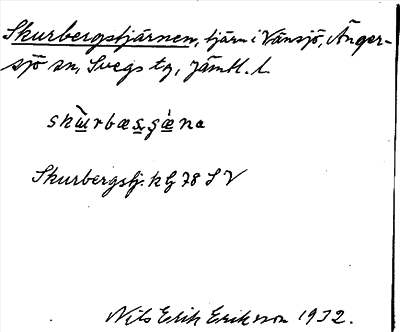 Skurbergstjärnen, tjärn i Vänsjö, Änger-
sjö sn, Svegs tg, Jämtl. l.
skùrbæsşæ̀na
Skurbergstj. kbl 78 SV
Nils Erik Eriksson 1932.